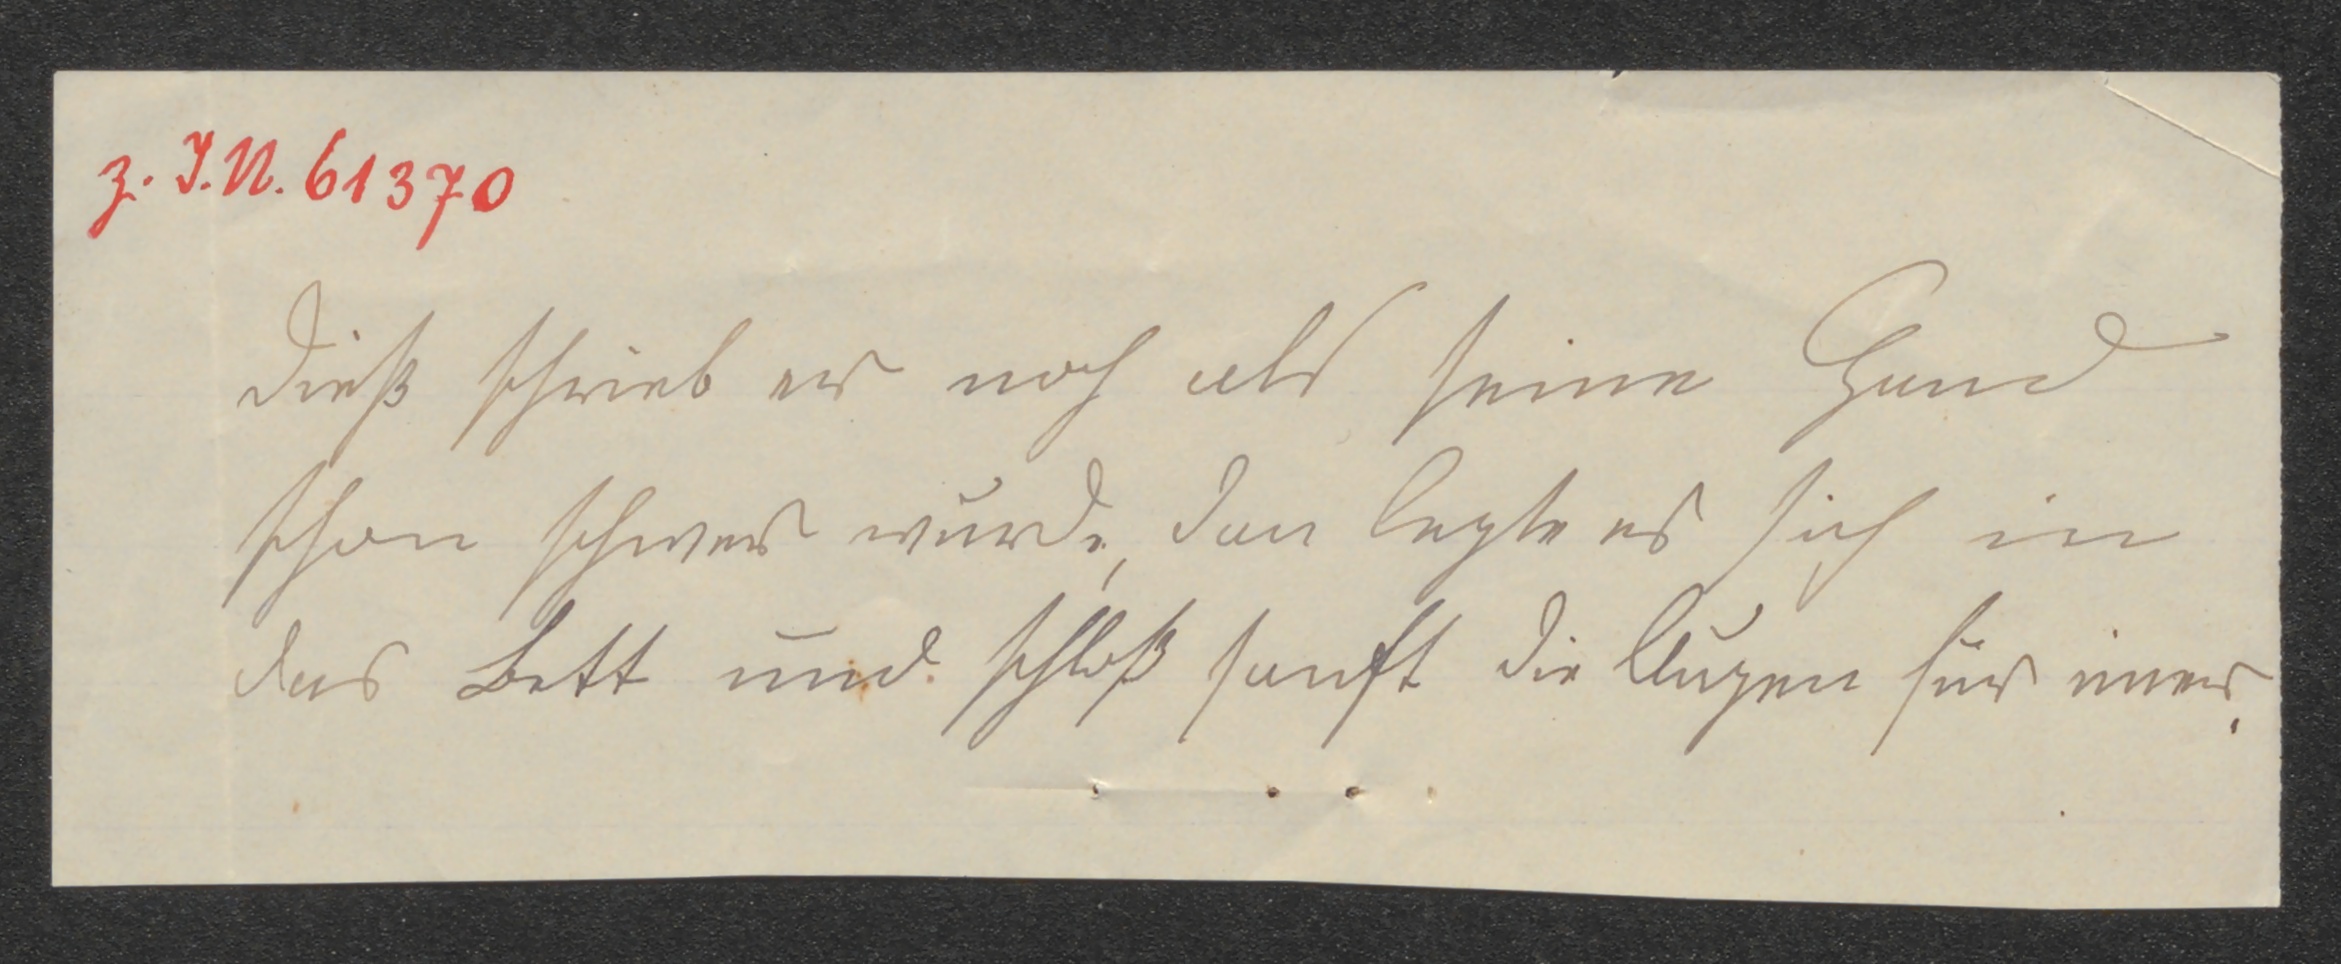 z. I.N. 61370
Dieß schrieb er noch als seine Hand
schon schwer wurde, dan legte er sich in
das Bett und schloß sanft die Augen für imer.